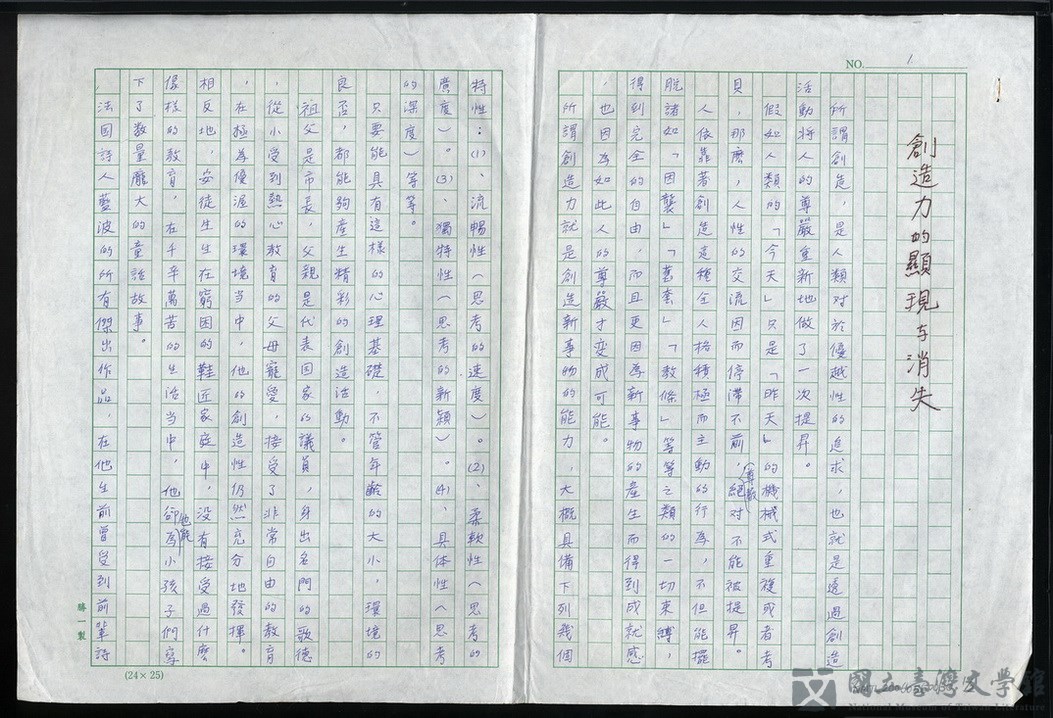 NO. 1
創造力的顯現与消失
所謂創造，是人類对於優越性的追求，也就是透過創造
活動將人的尊嚴重新地做了一次提昇。
假如人類的「今天」只是「昨天」的機械式重複或者考
具，那麼，人性的交流因而停滯不前，尊嚴絕对不能被提昇。
人依靠著創造這種全人格積極而主動的行為，不但能擺
脫諸如「因襲」「舊套」「教條」等等之類的一切束縛，
得到完全的自由，而且更因為新事物的產生而得到成就感
，也因為如此人的尊嚴才变成可能。
所謂創造力就是創造新事物的能力，大概具備下列幾個
特性：(1)、流暢性（思考的速度）。(2)、柔軟性（思考的
廣度）。(3)、獨特性（思考的新穎）。(4)、具体性（思考
的深度）等等。
只要能具有這樣的心理基礎，不管年齡的大小，環境的
良否，都能夠產生精彩的創造活動。
祖父是市長，父親是代表国家的議員，身出名門的歌德
，從小受到熱心教育的父母寵愛，接受了非常自由的教育
，在極為優渥的環境当中，他的創造性仍然充分地發揮。
相反地，安徒生生在窮困的鞋匠家庭中，没有接受過什麼
像樣的教育，在千辛萬苦的生活当中，他卻為小孩子們寫
下了数量龐大的童話故事。
法国詩人藍波的所有傑出作品，在他生前曾受到前輩詩
(24×25)
國立臺灣文學館
National Museum of Taiwan Literature